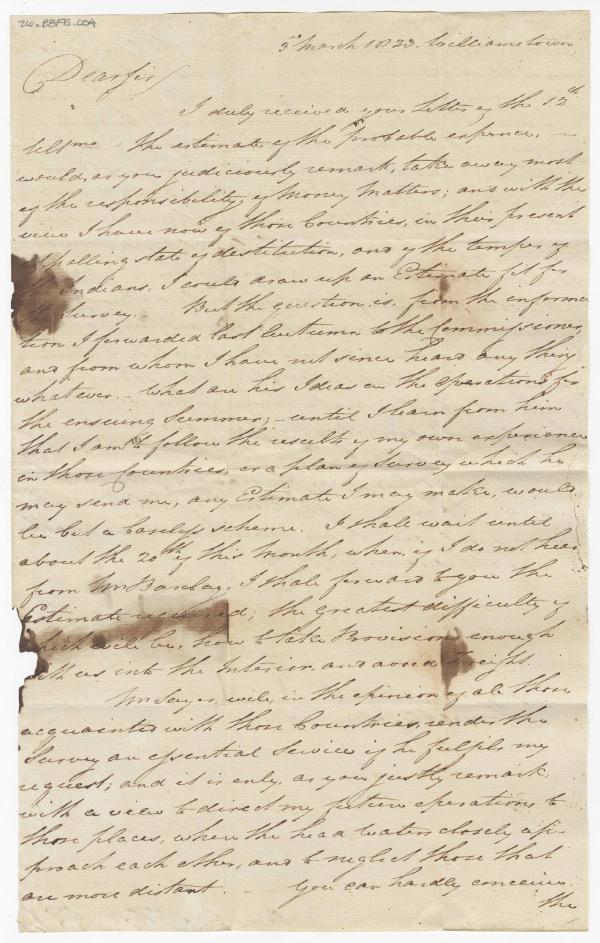 5th March 1823. Williamstown
Dear sir/
I duly received your Letter of the 12th
Ultmo The estimate of the probable expence,
would, as you judiciously remark, take away most
of the responsibility of Money Matters; and with the
view I have now of those Countries, in their present
appelling state of destitution, and of the temper of
the Indians, I could draw up an Estimate fit for
the Survey. But the question, is, from the informa
tion I forwarded last Autumn to the Commissioner,
and from whom I have not since heard any thing
whatever. - What are his Ideas on the operations for
the ensuing Summer; - until I learn from him
that I am to follow the results of my own experience
in those Countries, or a plan of Survey which he
may send me, any Estimate I may make, would
be but a baseless scheme. I shall wait until
about the 20th of this Month, when, if I do not hear
from Mr Barclay, I shall forward to you the
Estimate required; the greatest difficulty of
which will be, how to take Provisions enough
with us into the Interior, and avoid Freight.
Mr Sayer, will, in the opinion of all those
acquainted with those Countries, render the
Survey an essential Service if he fulfils my
request; and it is only, as you justly remark,
with a view to direct my future operations to
those places, where the head waters closely ap-
proach each other, and to neglect those that
are more distant. - You can hardly conceive
the